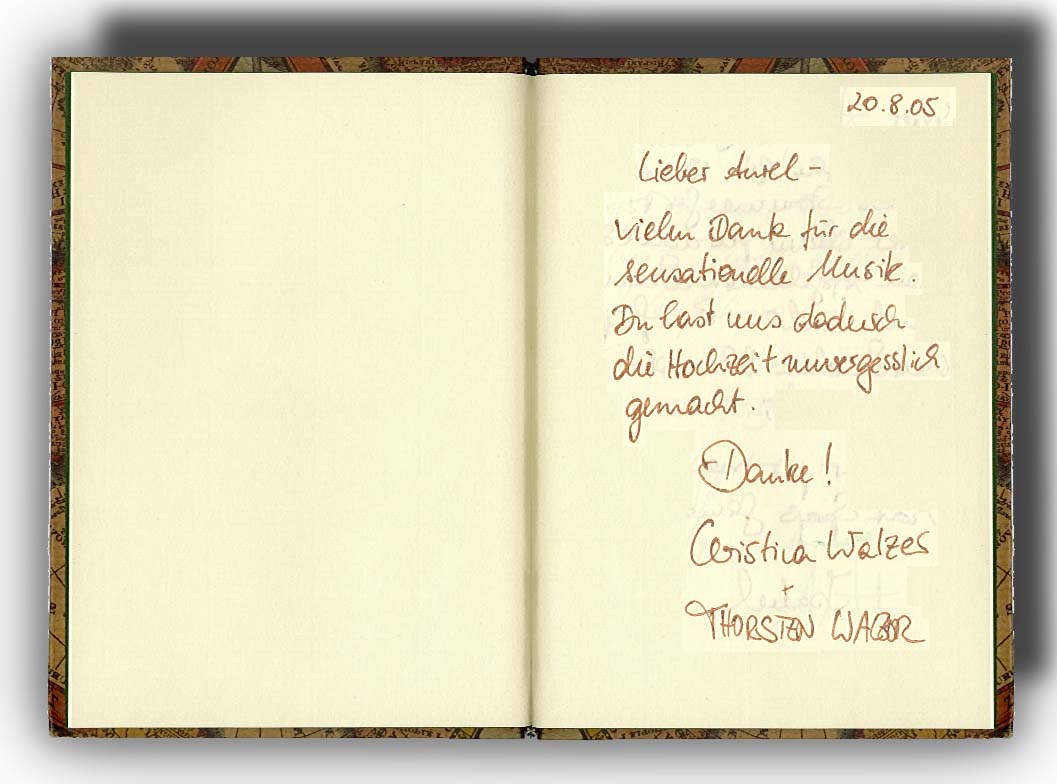 20.8.05
Lieber Aurel -
vielen Dank für die
sensationelle Musik.
Du hast uns dadurch
die Hochzeit unvergesslich
gemacht.
Danke!
Christina Walzer
+
THORSTEN